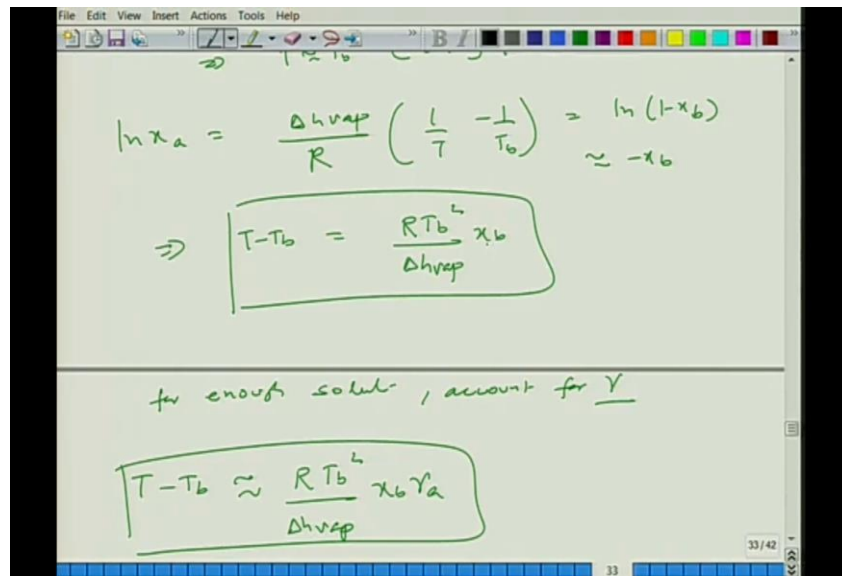 File Edit View Insert Actions Tools Help
B I
⇒ T ≈ Tb
ln xa = Δhvap/R (1/T - 1/Tb) = ln (1-xb)
≈ -xb
⇒ T-Tb = RTb²/Δhvap xb
for enough solut , account for γ
T-Tb ≈ RTb²/Δhvap xb γa
33/42
33